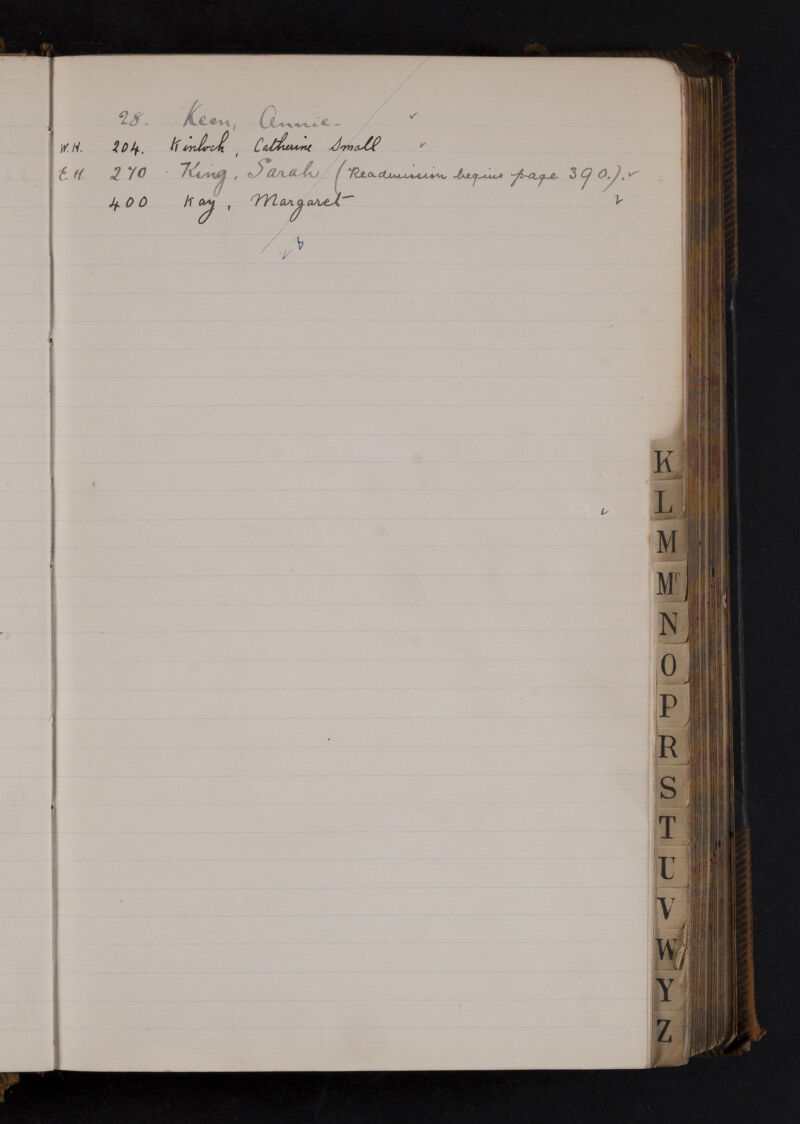 28. Keen, Annie. ✓
W.H. 204. Kinloch, Catherine Small ✓
E.H. 270 King, Sarah (Readmission begins page 390.). ✓
400 Kay, Margaret ✓
K
L
M
Mc
N
O
P
R
S
T
U
V
W
Y
Z